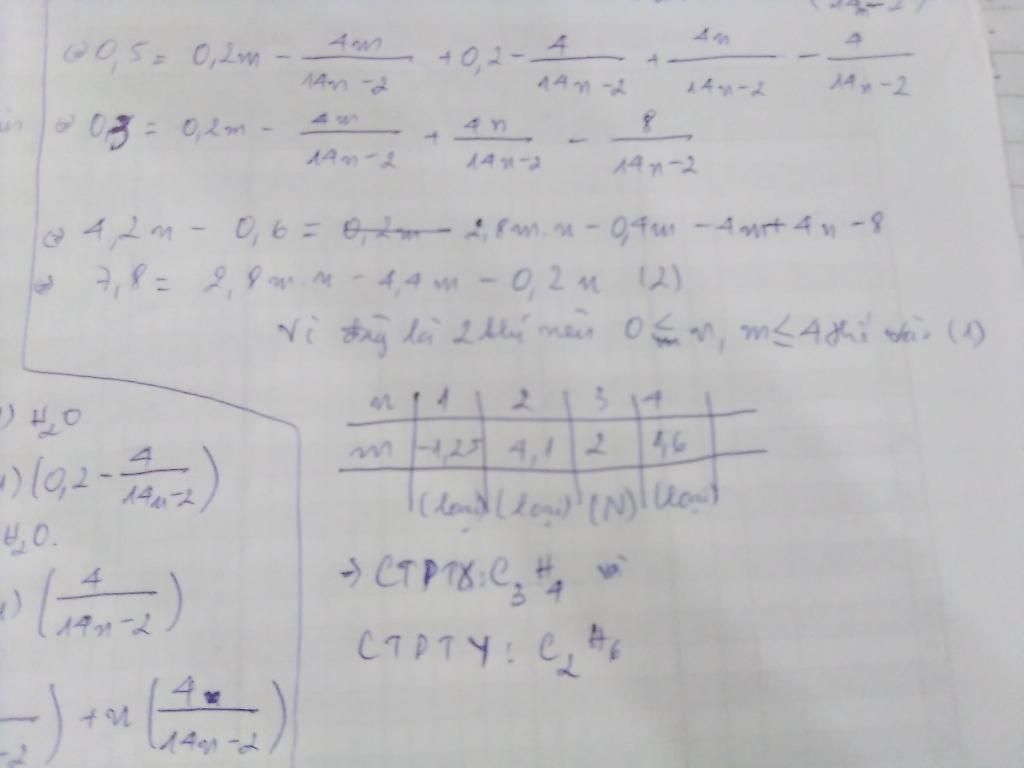 (14n-2)
⇔ 0,5 = 0,2m - 4m/(14n-2) + 0,2 - 4/(14n-2) + 4n/(14n-2) - 4/(14n-2)
⇔ 0,3 = 0,2m - 4m/(14n-2) + 4n/(14n-2) - 8/(14n-2)
⇔ 4,2n - 0,6 = 2,8m.n - 0,4m - 4m + 4n - 8
⇔ 7,8 = 2,8m.n - 4,4m - 0,2n (2)
Vì là 2 khí nên 0 ≤ n, m ≤ 4 (1)
n | 1 | 2 | 3 | 4
m | -1,25 | 4,1 | 2 | 1,6
(loại) (loại) (N) (loại)
→ CTPTX: C3H4 và
CTPTY: C2H6
) H2O
) (0,2 - 4/(14n-2))
H2O.
) (4/(14n-2))
-2) + n (4/(14n-2))